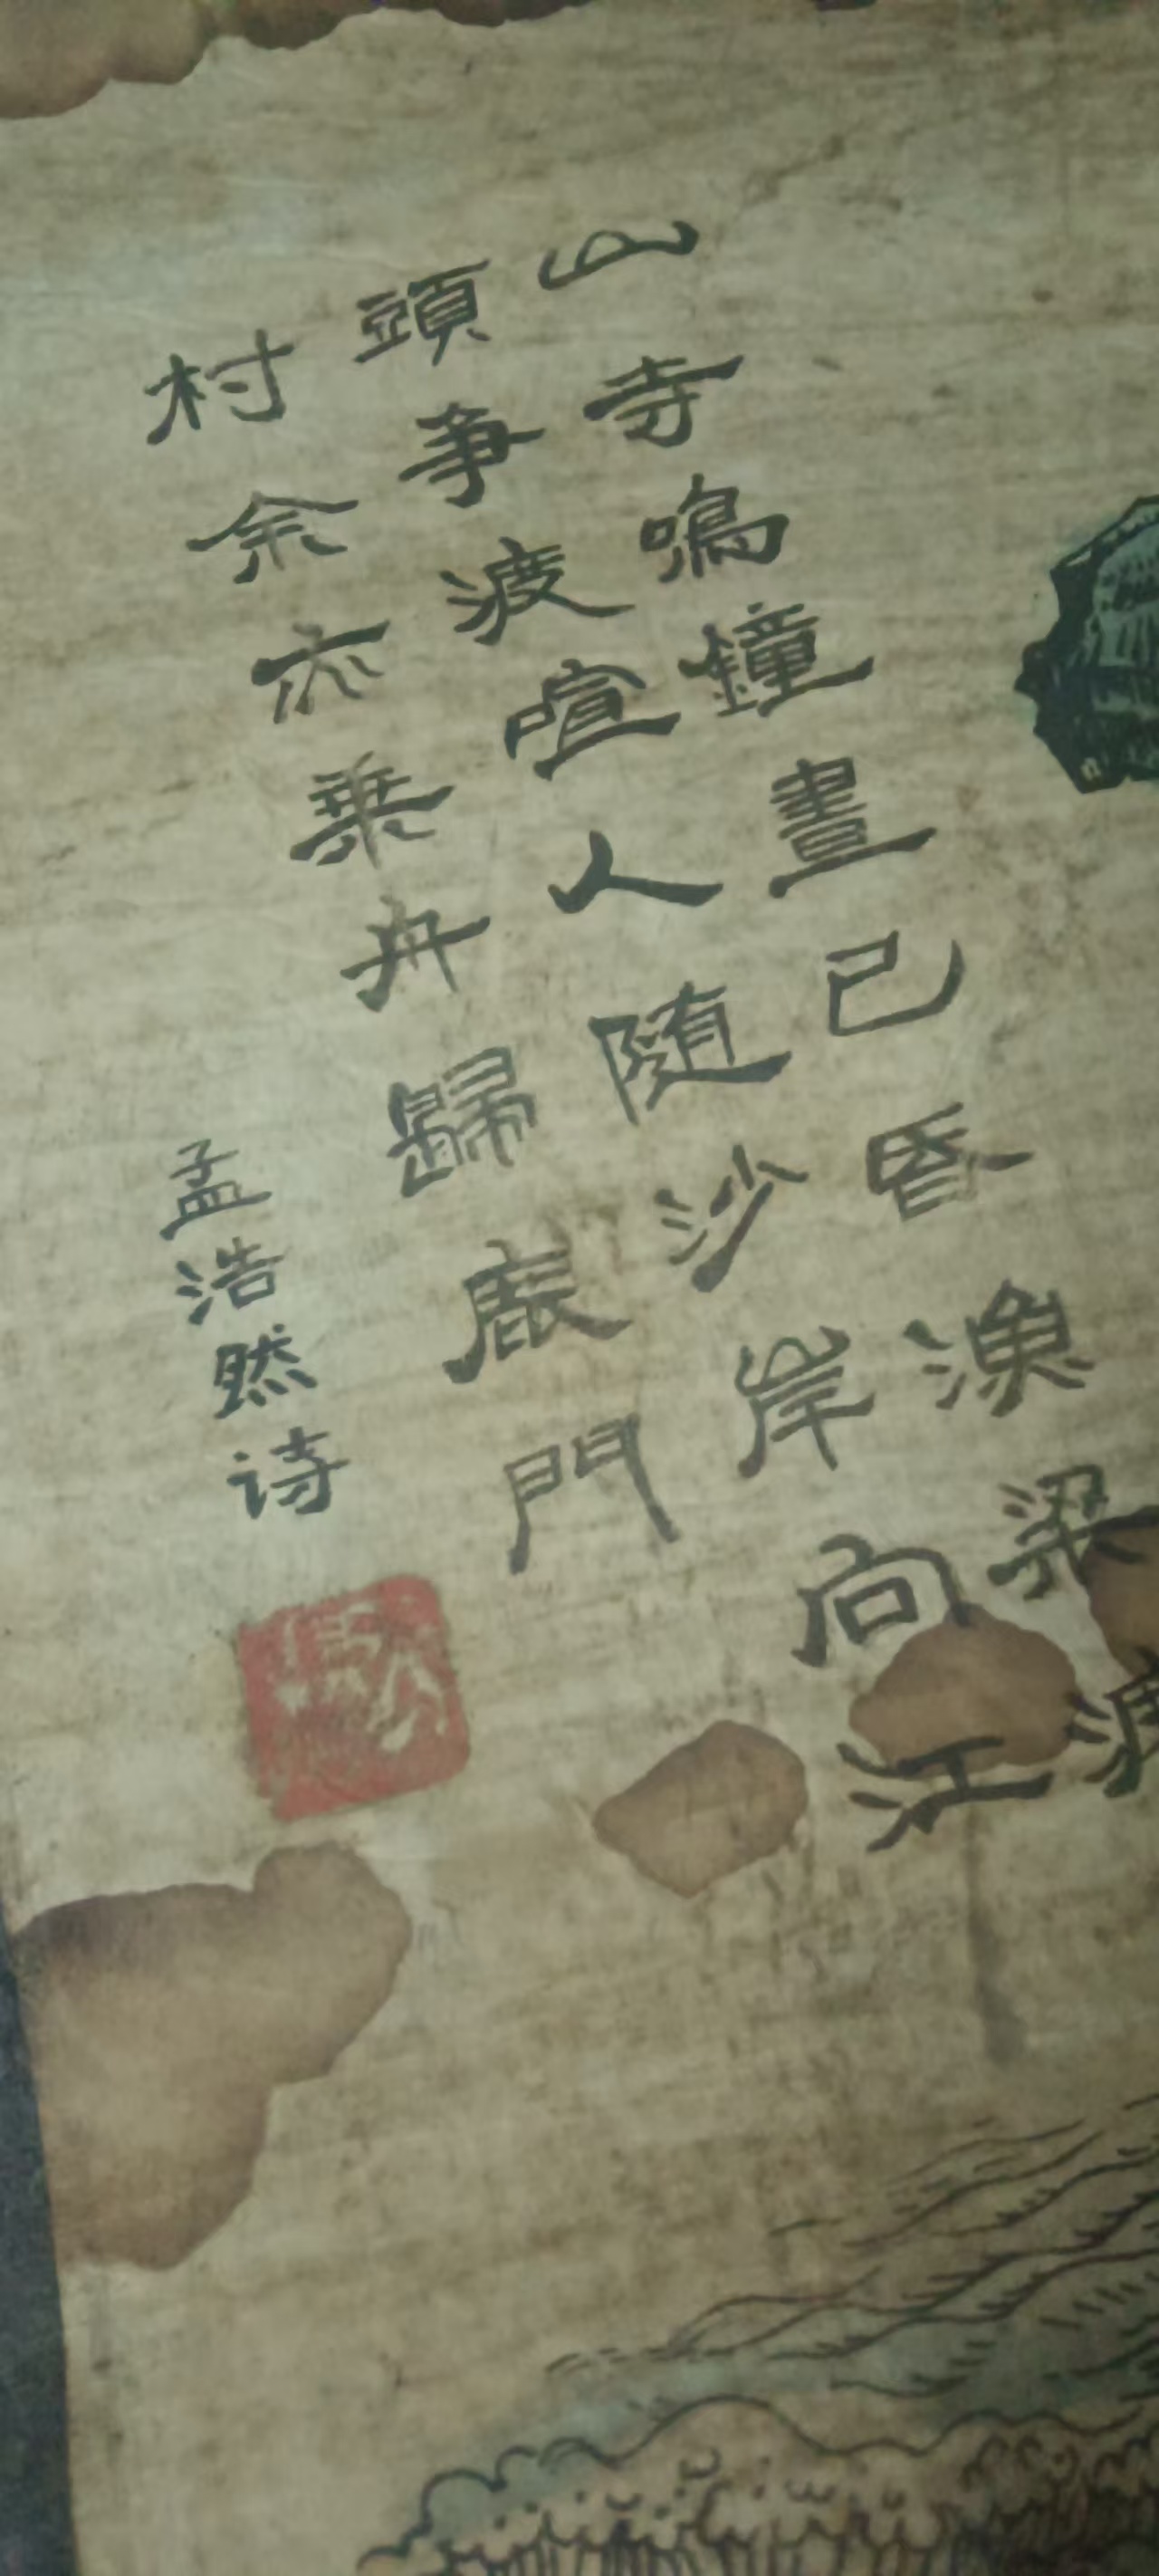 山寺鳴鐘晝已昏漁梁渡
頭爭渡喧人随沙岸向江
村余亦乗舟歸鹿門
孟浩然诗